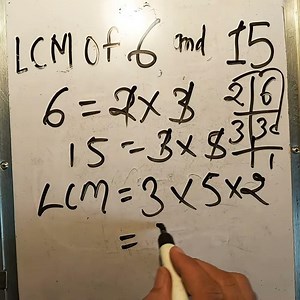 LCM of 6 and 15
6 = 2 × 3
2 | 6
15 = 3 × 5
3 | 3
1
LCM = 3 × 5 × 2
=